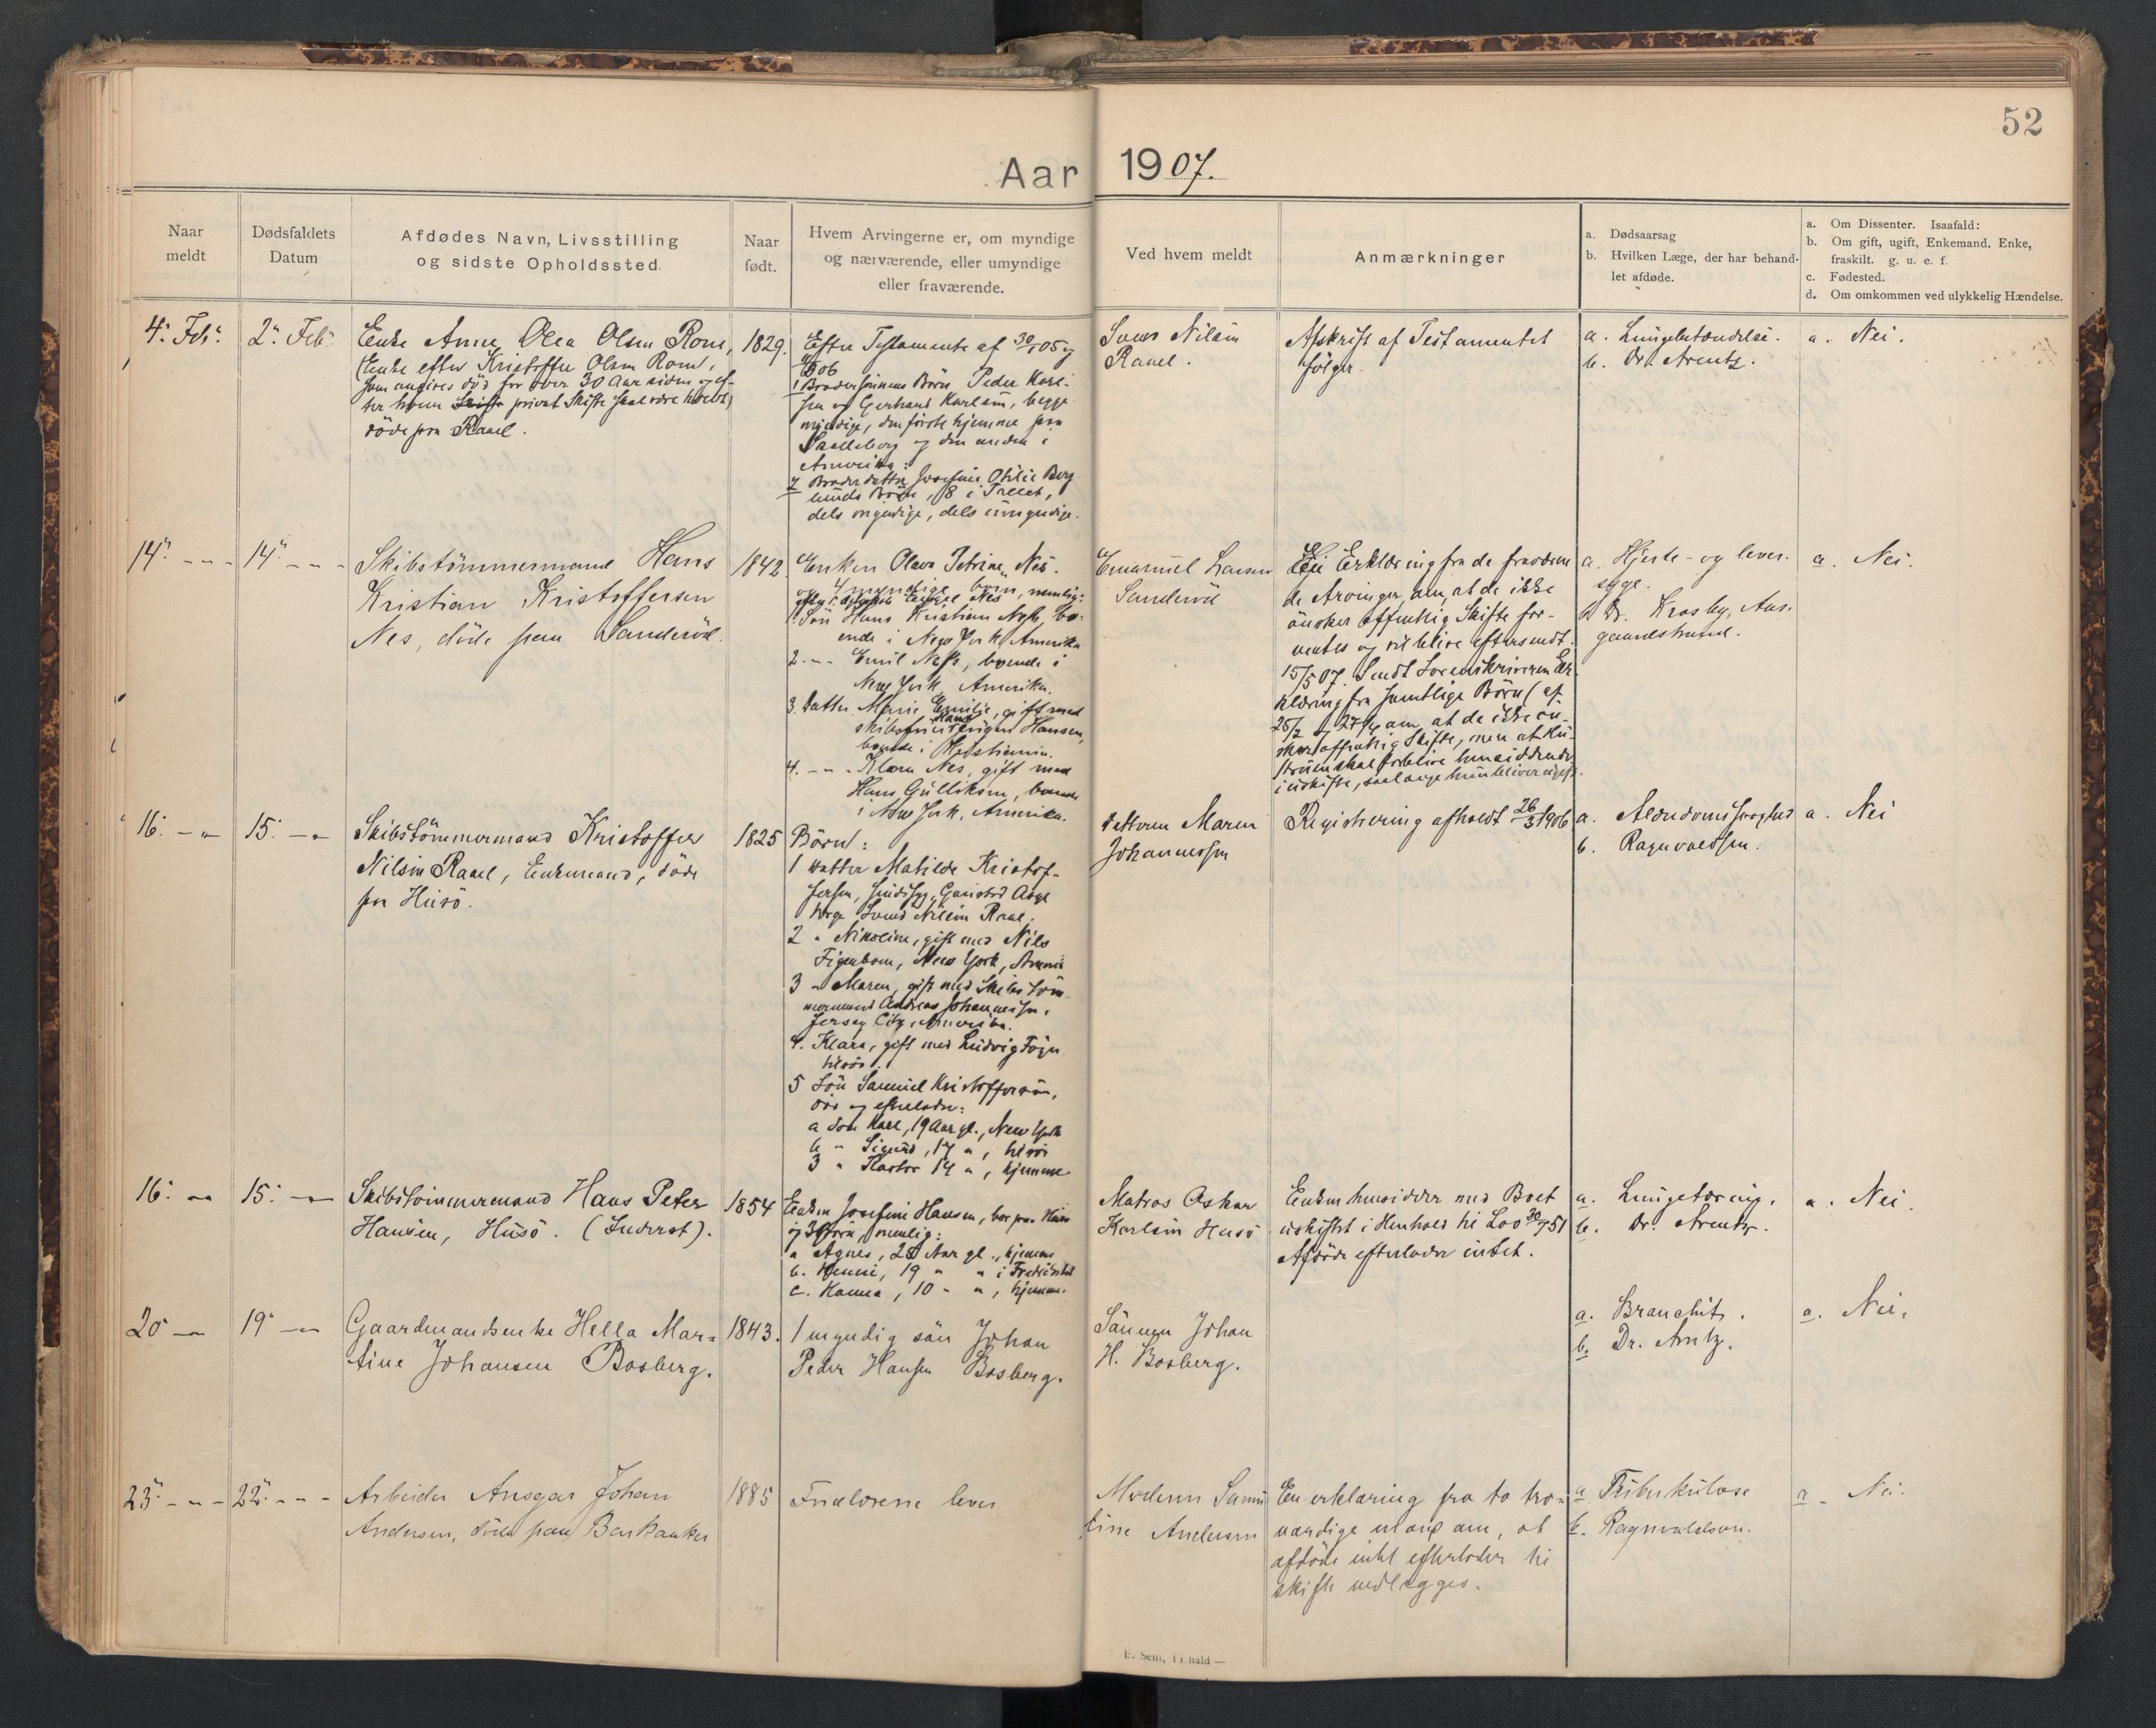 52
Aar 1907.
Naar
meldt
Dødsfaldets
Datum
Afdødes Navn, Livsstilling
og sidste Opholdssted.
Naar
født.
Hvem Arvingerne er, om myndige
og nærværende, eller umyndige
eller fraværende.
Ved hvem meldt
Anmærkninger
a. Dødsaarsag
b. Hvilken Læge, der har behand-
let afdøde.
a. Om Dissenter. Isaafald:
b. Om gift, ugift, Enkemand. Enke,
fraskilt. g. u. e. f.
c. Fødested.
d. Om omkommen ved ulykkelig Hændelse.
4. Feb.
2. Feb.
Enke Anne Olea Olsen Rom,
(Enke efter Kristoffer Olsen Rom,
som angives død for over 30 Aar siden og ef-
ter hvem privat Skifte skal være holdt)
døde paa Rauel.
1829.
Efter Testamente af 30/1 05 og
06
1 Brodersønnens Børn Peder Karl-
sen og Gerhard Karlsen, begge
myndige, den første hjemme paa
og den anden i
Amerika;
2 Broderdatter Josefine Otilie Berg
lunds Børn, 8 i Tallet,
dels myndige, dels umyndige.
Svend Nilsen
Rauel.
Afskrift af Testamentet
følger
a. Lungebetændelse.
b. Dr. Arentz.
a. Nei.
14. - " -
14. - " -
Skibstömmermand Hans
Kristian Kristoffersen
Nes, døde paa Sanderöd.
1842.
Enken Olava Petrine Nes.
og 4 myndige børn, nemlig:
1. Søn Hans Kristian Nes, bo-
ende i New York, Amerika
2. - " - Emil Nes, boende i
New York, Amerika.
3. Datter Marie Emilie, gift med
Hansen,
boende i Kristiania.
4. - " - Klara Nes, gift med
Hans Gulliksen, boende
i New York, Amerika.
Emanuel Larsen
Sanderöd
Erklæring fra de fraværen
de Arvinger, om, at de ikke
ønsker offentlig Skifte for-
ventes og vil blive eftersendt.
15/5 07. Sendt Sorenskriveren Er-
klæring fra samtlige Børn af
25/2 og 27/4 om, at de ikke øn-
sker offentlig Skifte, men at
skal forblive hensiddende
i uskifte, saalænge hun bliver ugift.
a. Hjerte- og lever-
syge.
b Dr. Krosby, Aas-
gaardstrand.
a. Nei.
16. - " -
15. - " -
Skibstömmermand Kristoffer
Nilsen Rauel, Enkemand, døde
paa Husö.
1825
Børn:
1 Datter Matilde Kristof-
fersen, sindssyg, Gaustad Asyl
Værge Svend Nilsen Rauel.
2 " Nikoline, gift med Nils
Figenbom, New York, Amerik
3 " Maren, gift med Skibstöm-
mermand Andreas Johannessen,
Jersey City, Amerika.
4. Klara, gift med Ludvig Föyn
tilsös.
5 Sön Samuel Kristoffersen,
död og efterlader:
a Sön Karl, 19 Aar gl., New York
b " Sigurd, 17 " , tilsös
3 " Kastor 14 " , hjemme
Datteren Maren
Johannessen
Registrering afholdt 26/3 1906
a. Alderdomssvaghed
b. Ragnvaldsen.
a. Nei
16. - " -
15. - " -
Skibstömmermand Hans Peter
Hansen, Husö. (Inderst).
1854
Enken Josefine Hansen, bor paa Husö
og 3 Børn, nemlig:
a Agnes, 28 Aar gl., hjemme
b. Jenni, 19 " " i Fredrikstad
c. Hanna, 10 " " , hjemme.
Matros Oskar
Karlsen Husö
Enken hensidder med Boet
uskiftet i Henhold til Lov 30/7 51
Afdöde efterlader intet.
a. Lungetæring.
b. Dr. Arentz.
a. Nei.
20 - " -
19 - " -
Gaardmandsenke Hella Mar-
tine Johansen Bosberg.
1843.
1 myndig sön Johan
Peder Hansen Bosberg.
Sönnen Johan
H. Bosberg.
a. Bronchit.
b. Dr. Arntz.
a. Nei.
23. - " -
22. - " -
Arbeider Ansgar Johan
Andersen, döde paa Barkaaker
1885
Forældrene lever
Moderen Samu
line Andersen
En erklæring fra to tro-
værdige mænd om, at
afdöde intet efterlader til
skifte vedlægges.
a Tuberkulose
b. Ragnvaldson.
a. Nei.
E. Sem, Fr.hald —